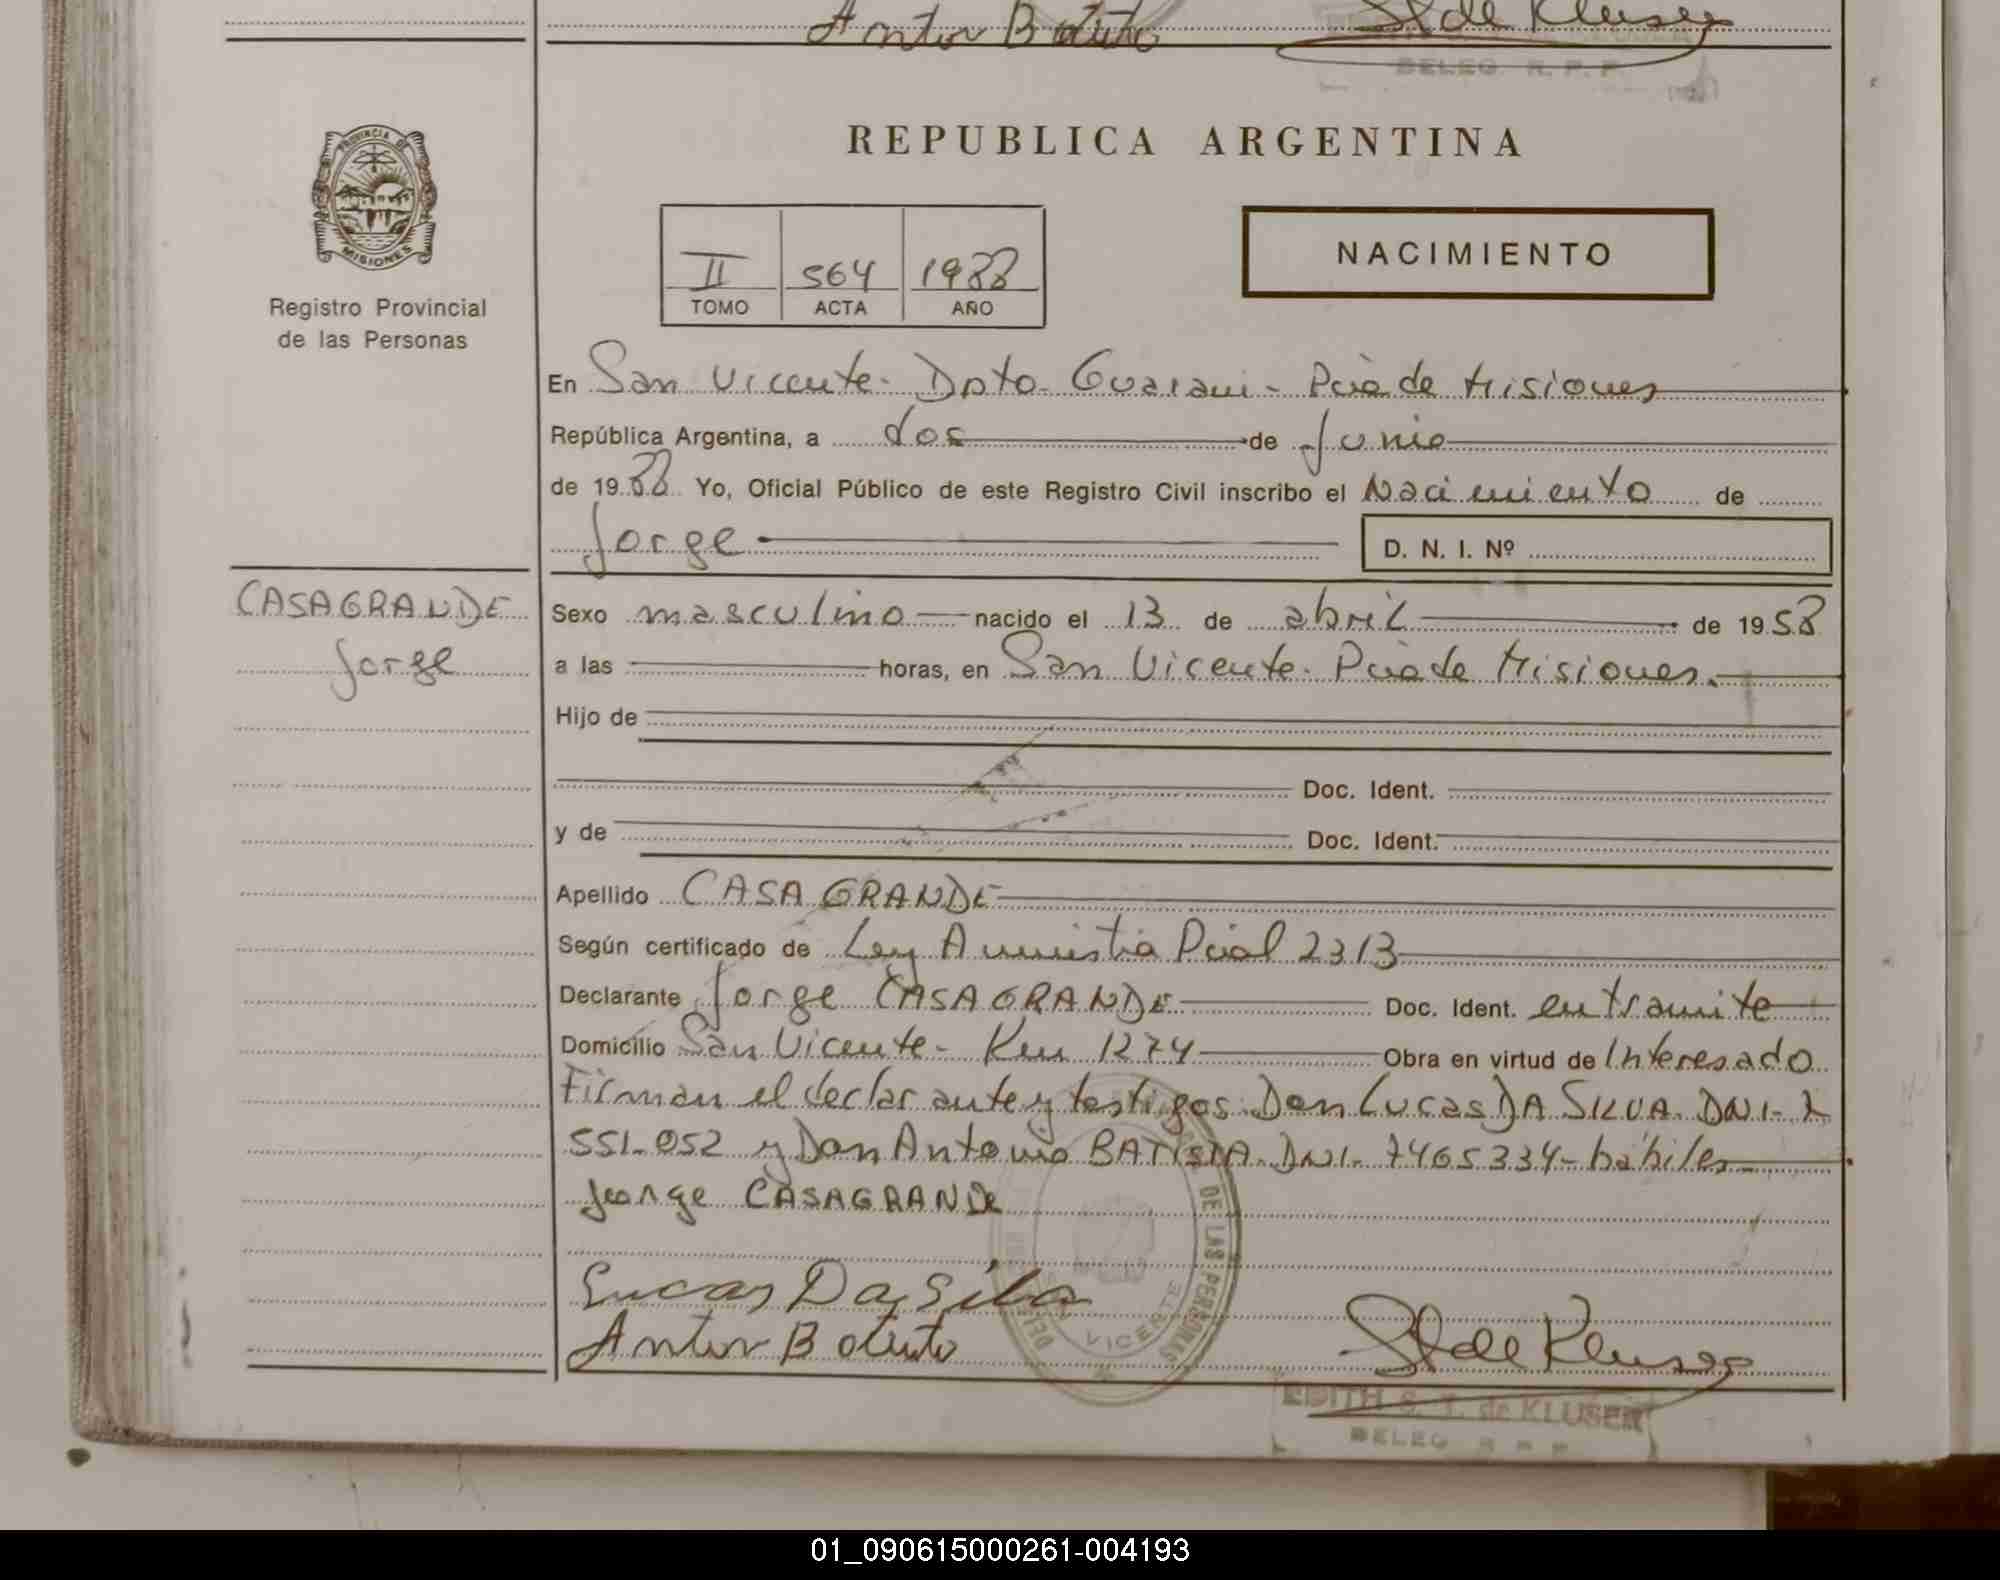 Antor Batisto Stde Kluser
DELEG. R. P. P.
PROVINCIA DE
MISIONES
Registro Provincial
de las Personas
REPUBLICA ARGENTINA
II 564 1988
TOMO ACTA AÑO
NACIMIENTO
En San Vicente - Dpto. Guarani - Pcia de Misiones
República Argentina, a dos de Junio
de 1988 Yo, Oficial Público de este Registro Civil inscribo el Nacimiento de
Jorge D. N. I. Nº
CASAGRANDE
Jorge
Sexo masculino nacido el 13 de abril de 1958
a las horas, en San Vicente. Pcia de Misiones.
Hijo de
Doc. Ident.
y de Doc. Ident.
Apellido CASAGRANDE
Según certificado de Ley Amnistia Pcial 2313
Declarante Jorge CASAGRANDE Doc. Ident. en tramite
Domicilio San Vicente - Km 1274 Obra en virtud de Interesado
Firman el declarante y testigos Don Lucas DA SILVA. DNI.
551.052 y Don Antonio BATISTA. DNI. 7465334 - hábiles
Jorge CASAGRANDE
Lucas Da Silva
Antor Batisto Stde Kluser
DE LAS PERSONAS
VICENTE
EDITH S. T. de KLUSER
DELEG R P P
01_090615000261-004193